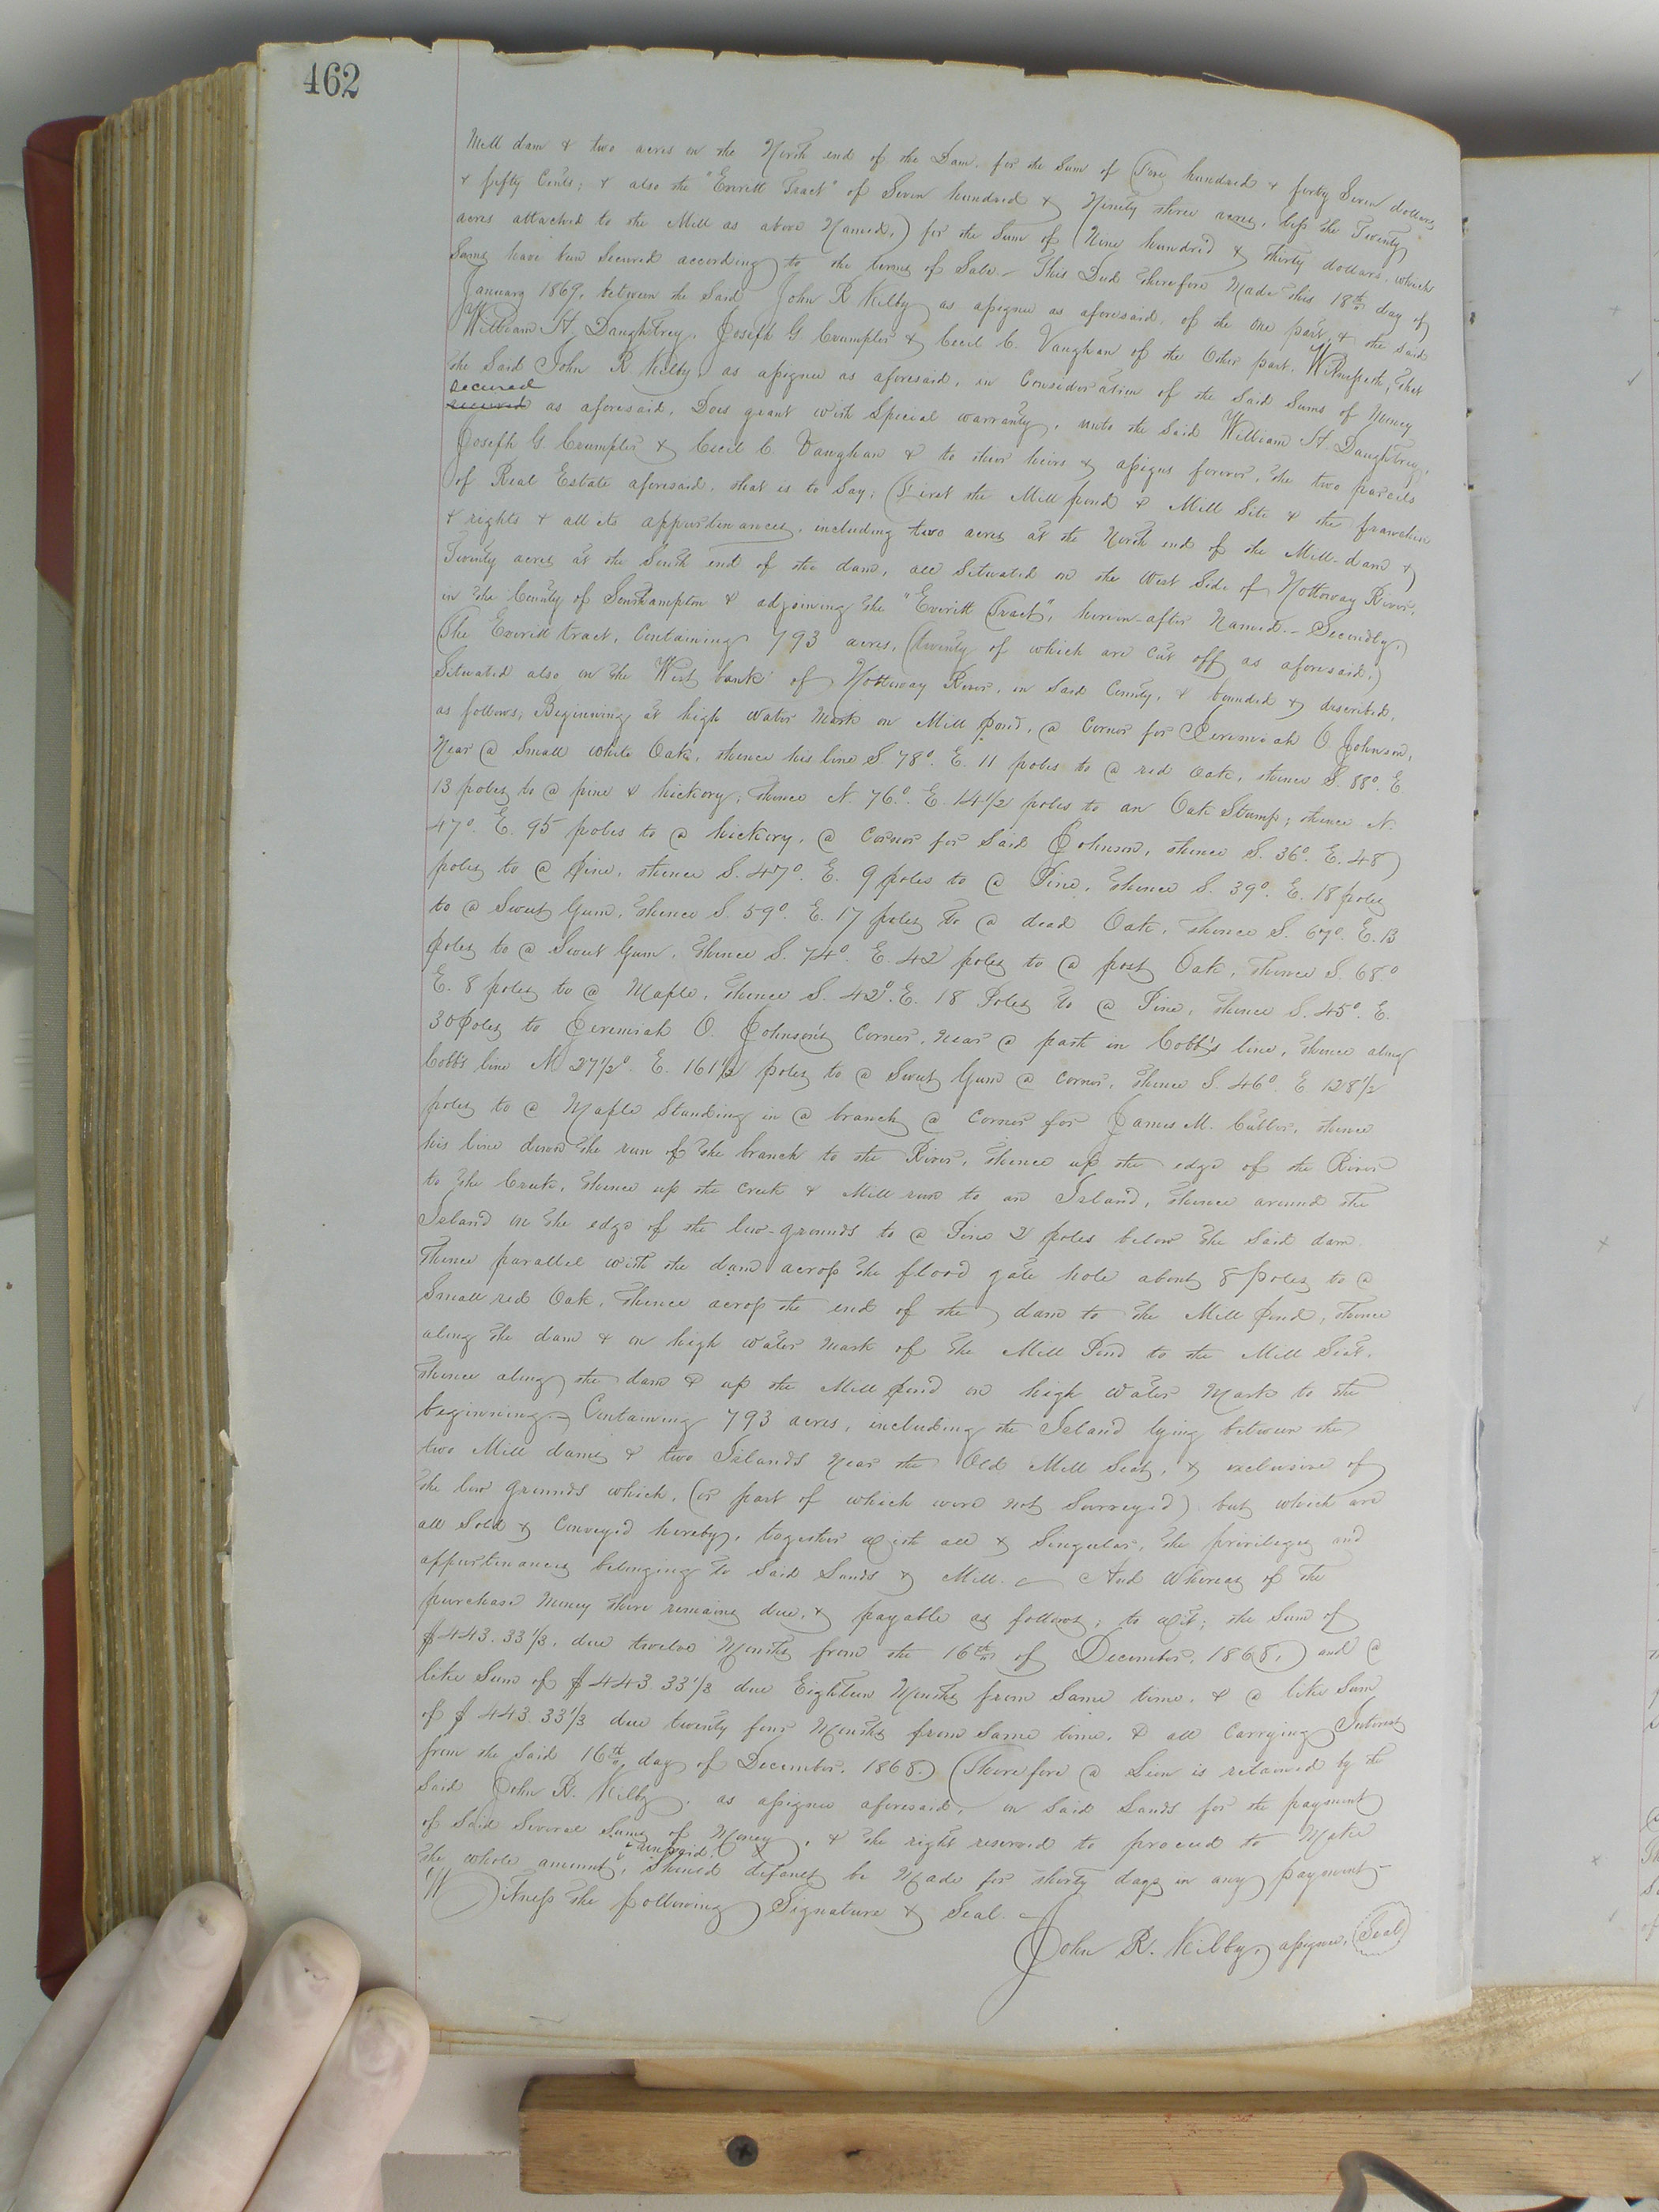 462
Mill dam & two acres on the North end of the Dam. for the Sum of (Five hundred & forty Seven dollars
& fifty Cents; & also the "Everitt Tract" of Seven hundred & Ninety three acres, less the Twenty
acres attached to the Mill as above Named,) for the Sum of (Nine hundred & Thirty dollars. which
Sums have been Secured according to the terms of Sale - This Deed therefore Made this 18th day of
January 1869, between the Said John R Kilby as assignee as aforesaid, of the one part, & the said
William H. Daughtrey, Joseph G. Crumpler & Cecil C. Vaughan of the Other part. Witnesseth; That
the Said John R. Kilby, as assignee as aforesaid, in Consideration of the Said Sums of Money
secured
as aforesaid, Does grant with Special warranty, unto the Said William H. Daughtrey,
Joseph G Crumpler & Cecil C. Vaughan & to their heirs & assigns forever, the two parcels
of Real Estate aforesaid, that is to Say; (First the Mill pond & Mill Site & the franchise
& rights & all its appurtenances, including two acres at the North end of the Mill-dam &
Twenty acres at the South end of the dam, all Situated on the West Side of Nottoway River,
in the County of Southampton & adjoining the "Everitt Tract", herein-after Named.- Secondly,
The Everitt tract, Containing 793 acres, (twenty of which are cut off as aforesaid,)
Situated also on the West bank of Nottoway River, in Said County, & bounded & described,
as follows; Beginning at high water Mark on Mill Pond, @ Corner for Jeremiah O. Johnson,
Near @ Small white Oak, thence his line S. 78°. E. 11 poles to @ red Oak, thence S. 88°. E.
13 poles to @ pine & hickory; thence N. 76.° E. 14½ poles to an Oak Stump; thence N.
47°. E. 95 poles to @ hickory, @ Corner for Said Johnson, thence S. 36°. E. 48
poles to @ Pine, thence S. 47°. E. 9 poles to @ Pine, thence S. 39°. E. 18 poles
to @ Sweet Gum, thence S. 59°. E. 17 poles to @ dead Oak, thence S. 67°. E. 13
poles to @ Sweet Gum, thence S. 74°. E. 42 poles to @ post Oak, thence S. 68°
E. 8 poles to @ Maple, thence S. 42°. E. 18 Poles to @ Pine, thence S. 45°. E.
30 Poles to Jeremiah O. Johnson's Corner, Near @ path in Cobb's line, thence along
Cobb's line N 27½°. E. 161½ poles to @ Sweet Gum @ Corner, thence S. 46°. E 128½
poles to @ Maple Standing in @ branch @ Corner for James M. Cutler, thence
his line down the run of the branch to the River, thence up the edge of the River
to the Creek, thence up the Creek & Mill run to an Island, thence around the
Island on the edge of the low-grounds to @ Pine 2 poles below the Said dam
Thence parallel with the dam across the flood gate hole about 8 poles to @
Small red Oak, thence across the end of the dam to the Mill Pond, thence
along the dam & on high water Mark of the Mill Pond to the Mill Seat,
thence along the dam & up the Mill Pond on high water Mark to the
beginning.- Containing 793 acres, including the Island lying between the
two Mill dams & two Islands Near the Old Mill Seat, & exclusive of
the low grounds which, (or part of which were not Surveyed) but which are
all Sold & Conveyed hereby, together with all & Singular, the privileges and
appurtenances belonging to Said Lands & Mill. - And Whereas of the
purchase Money there remains due, & payable as follows; to wit; the Sum of
$443.33⅓, due twelve Months from the 16th of December, 1868, and @
like Sum of $443.33⅓ due Eighteen Months from Same time, & @ like Sum
of $443.33⅓ due twenty four Months from Same time, & all Carrying Interest
from the Said 16th day of December, 1868) (Therefore @ Lien is retained by the
Said John R. Kilby, as assignee aforesaid, on Said Lands for the payment
of Said Several Sums of Money, & the right reserved to proceed to Make
the whole amount, unpaid, Should default be Made for thirty days in any payment -
Witness the following Signature & Seal. -
John R. Kilby, assignee, (Seal)